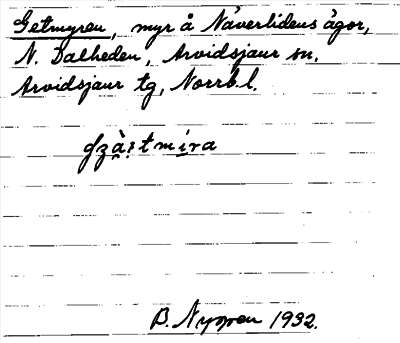 Getmyren, myr å Näverlidens ägor,
N. Dalheden, Arvidsjaur sn,
Arvidsjaur tg, Norrb.l.
B. Nyman 1932.